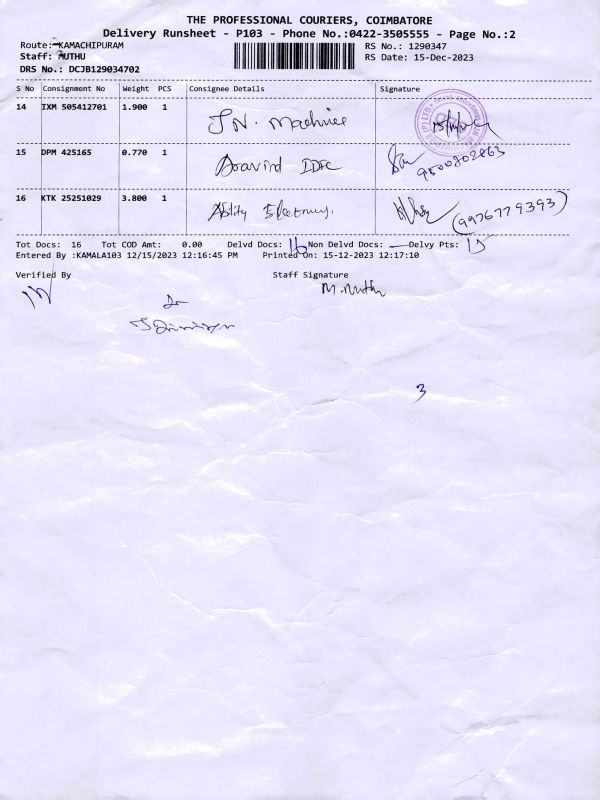 THE PROFESSIONAL COURIERS, COIMBATORE
Delivery Runsheet - P103 - Phone No.:0422-3505555 - Page No.:2
Route: KAMACHIPURAM
RS No.: 1290347
Staff: MUTHU
RS Date: 15-Dec-2023
DRS No.: DCJB129034702
S No Consignment No Weight PCS Consignee Details Signature
14 IXM 505412701 1.900 1 J.N. Machines
15 DPM 425165 0.770 1 Aravind IDFC 9500802863
16 KTK 25251029 3.800 1 Ability (9976779393)
Tot Docs: 16 Tot COD Amt: 0.00 Delvd Docs: 16 Non Delvd Docs: — Delvy Pts: 15
Entered By :KAMALA103 12/15/2023 12:16:45 PM Printed On: 15-12-2023 12:17:10
Verified By Staff Signature
M. Muthu
3